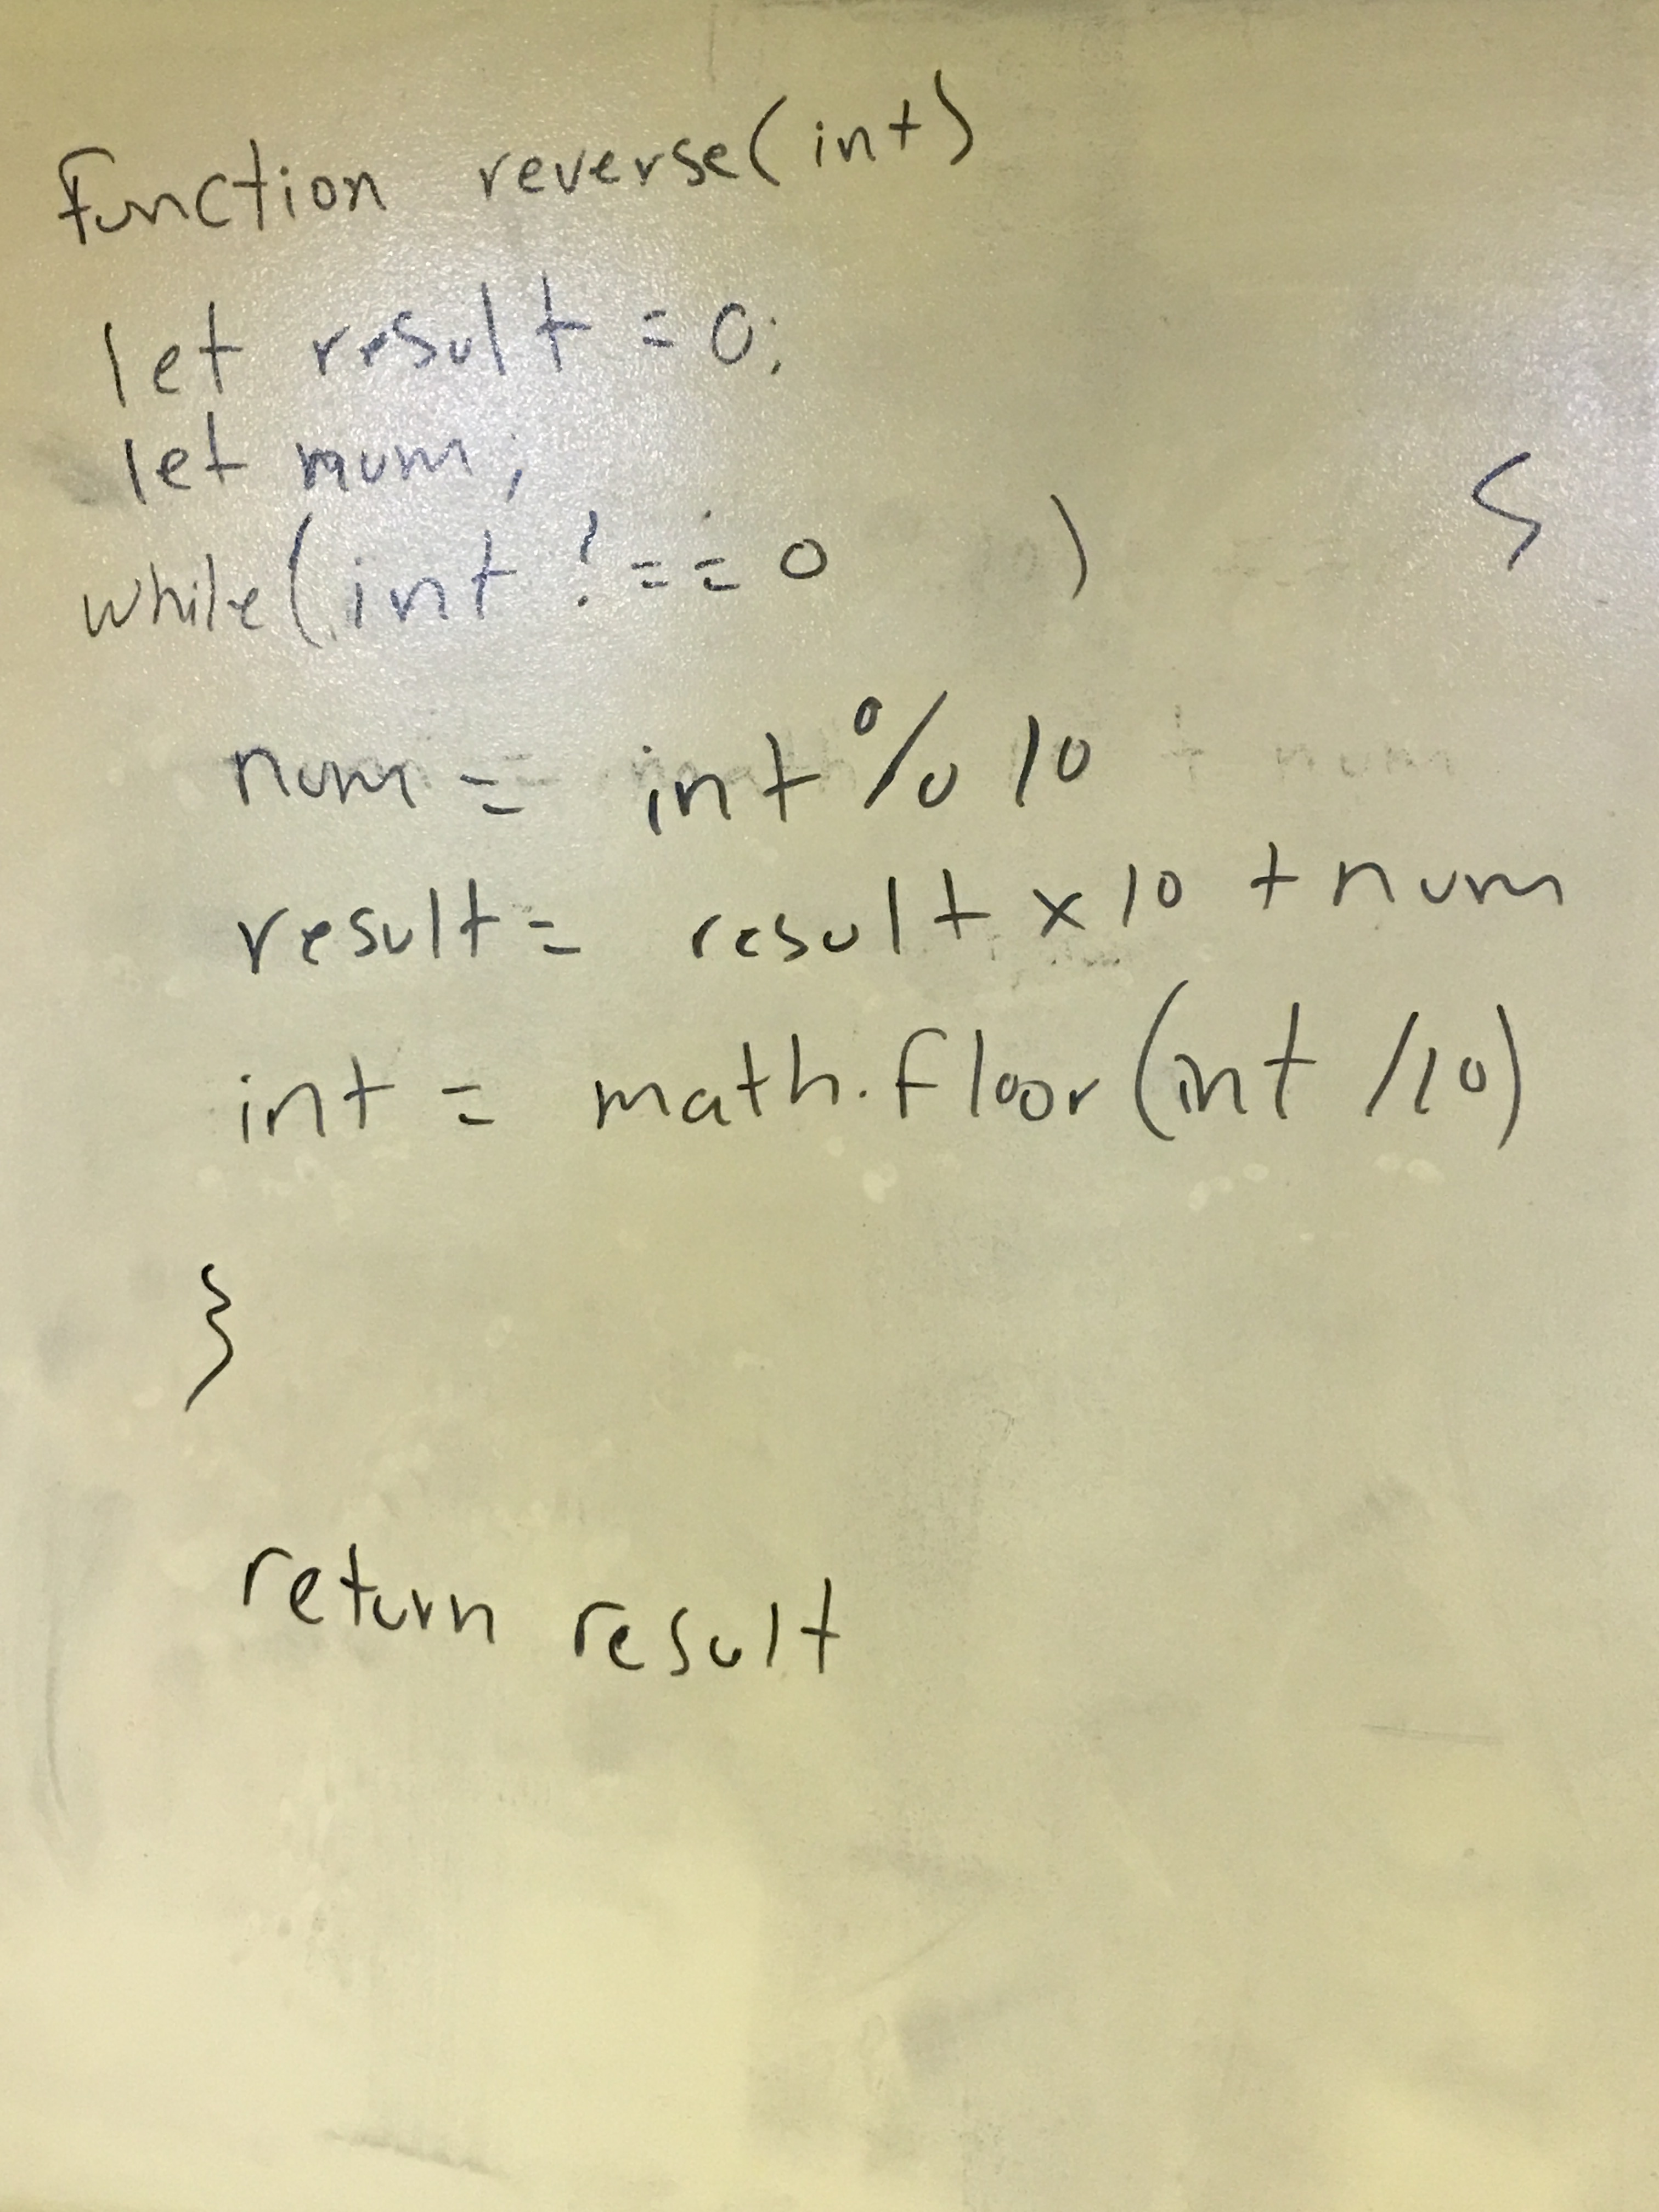 function reverse(int)
let result = 0;
let num;
while(int !== 0 ) {
num = int % 10
result = result x 10 + num
int = math.floor(int /10)
}
return result